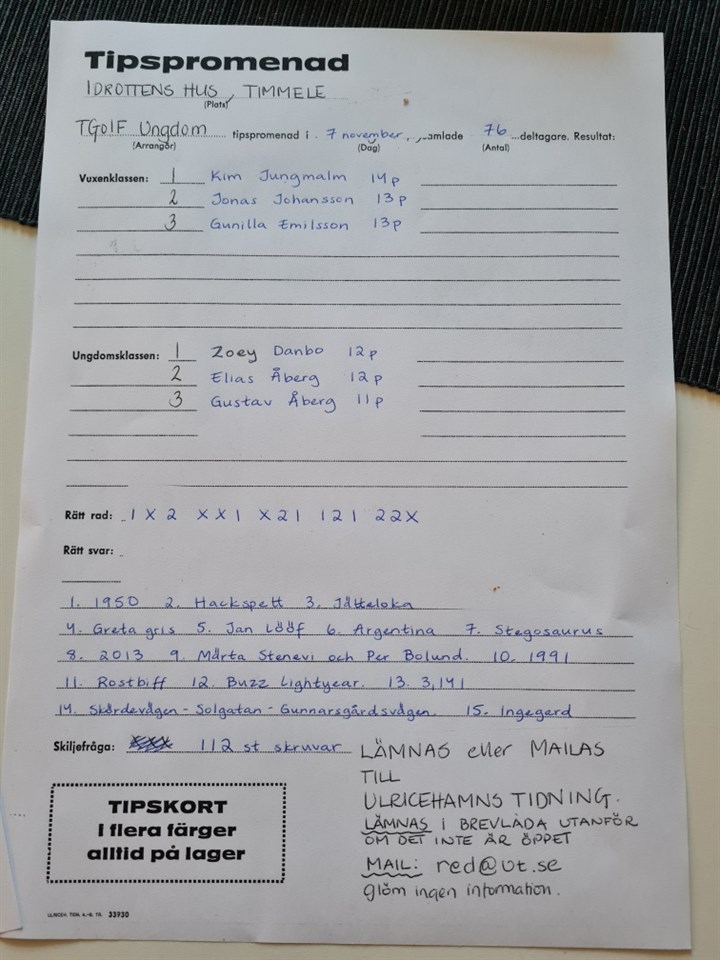 Tipspromenad
IDROTTENS HUS, TIMMELE
(Plats)
TGoIF Ungdom tipspromenad i 7 november, samlade 76 deltagare. Resultat:
(Arrangör) (Dag) (Antal)
Vuxenklassen: 1 Kim Jungmalm 14p
2 Jonas Johansson 13p
3 Gunilla Emilsson 13p
Ungdomsklassen: 1 Zoey Danbo 12p
2 Elias Åberg 12p
3 Gustav Åberg 11p
Rätt rad: 1X2 XX1 X21 121 22X
Rätt svar:
1. 1950 2. Hackspett 3. Jätteloka
4. Greta gris 5. Jan Lööf 6. Argentina 7. Stegosaurus
8. 2013 9. Märta Stenevi och Per Bolund. 10. 1991
11. Rostbiff 12. Buzz lightyear. 13. 3,141
14. Skördevägen - Solgatan - Gunnarsgårdsvägen. 15. Ingegerd
Skiljefråga: 112 st skruvar
LÄMNAS eller MAILAS
TILL
ULRICEHAMNS TIDNING.
LÄMNAS I BREVLÅDA UTANFÖR
OM DET INTE ÄR ÖPPET
MAIL: red@ut.se
glöm ingen information.
TIPSKORT
I flera färger
alltid på lager
ULRICEH. TIDN. A.-B. TR. 33930